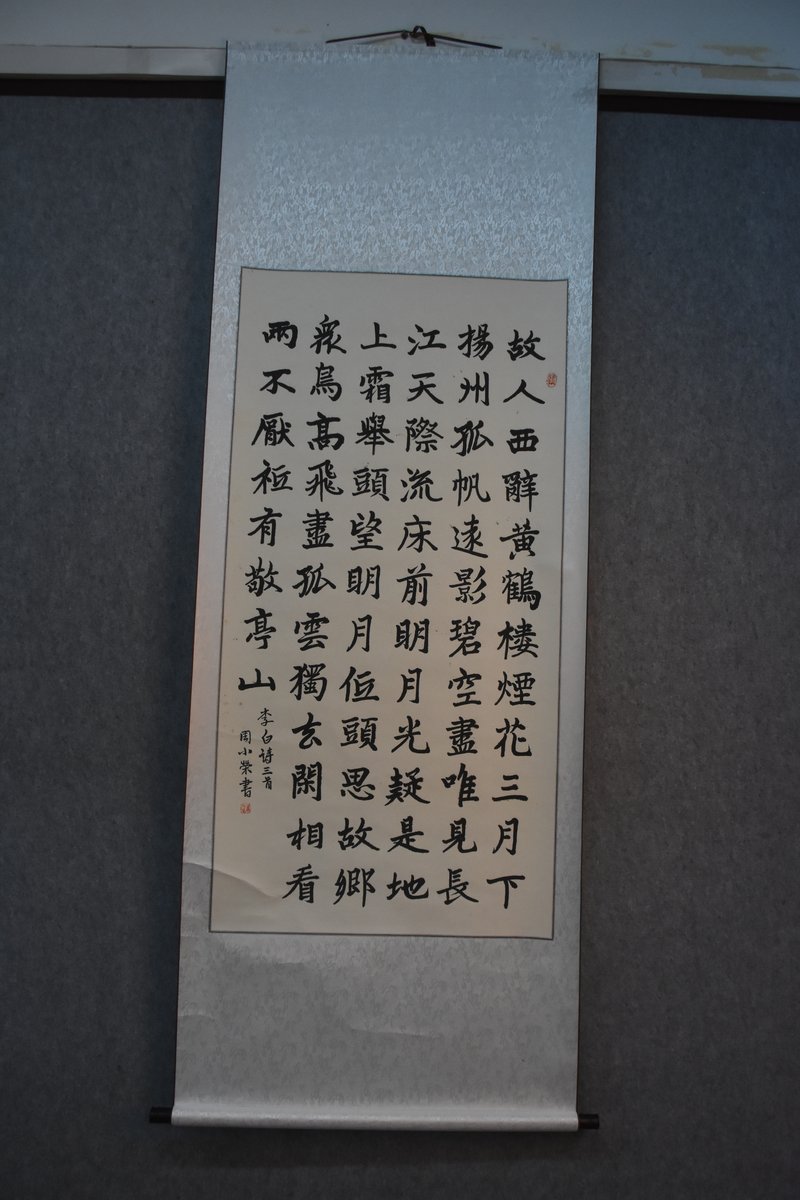 故人西辭黄鶴樓煙花三月下
揚州孤帆遠影碧空盡唯見長
江天際流床前明月光疑是地
上霜舉頭望明月低頭思故鄉
衆鳥高飛盡孤雲獨去閑相看
兩不厭衹有敬亭山
李白诗三首
周小榮書